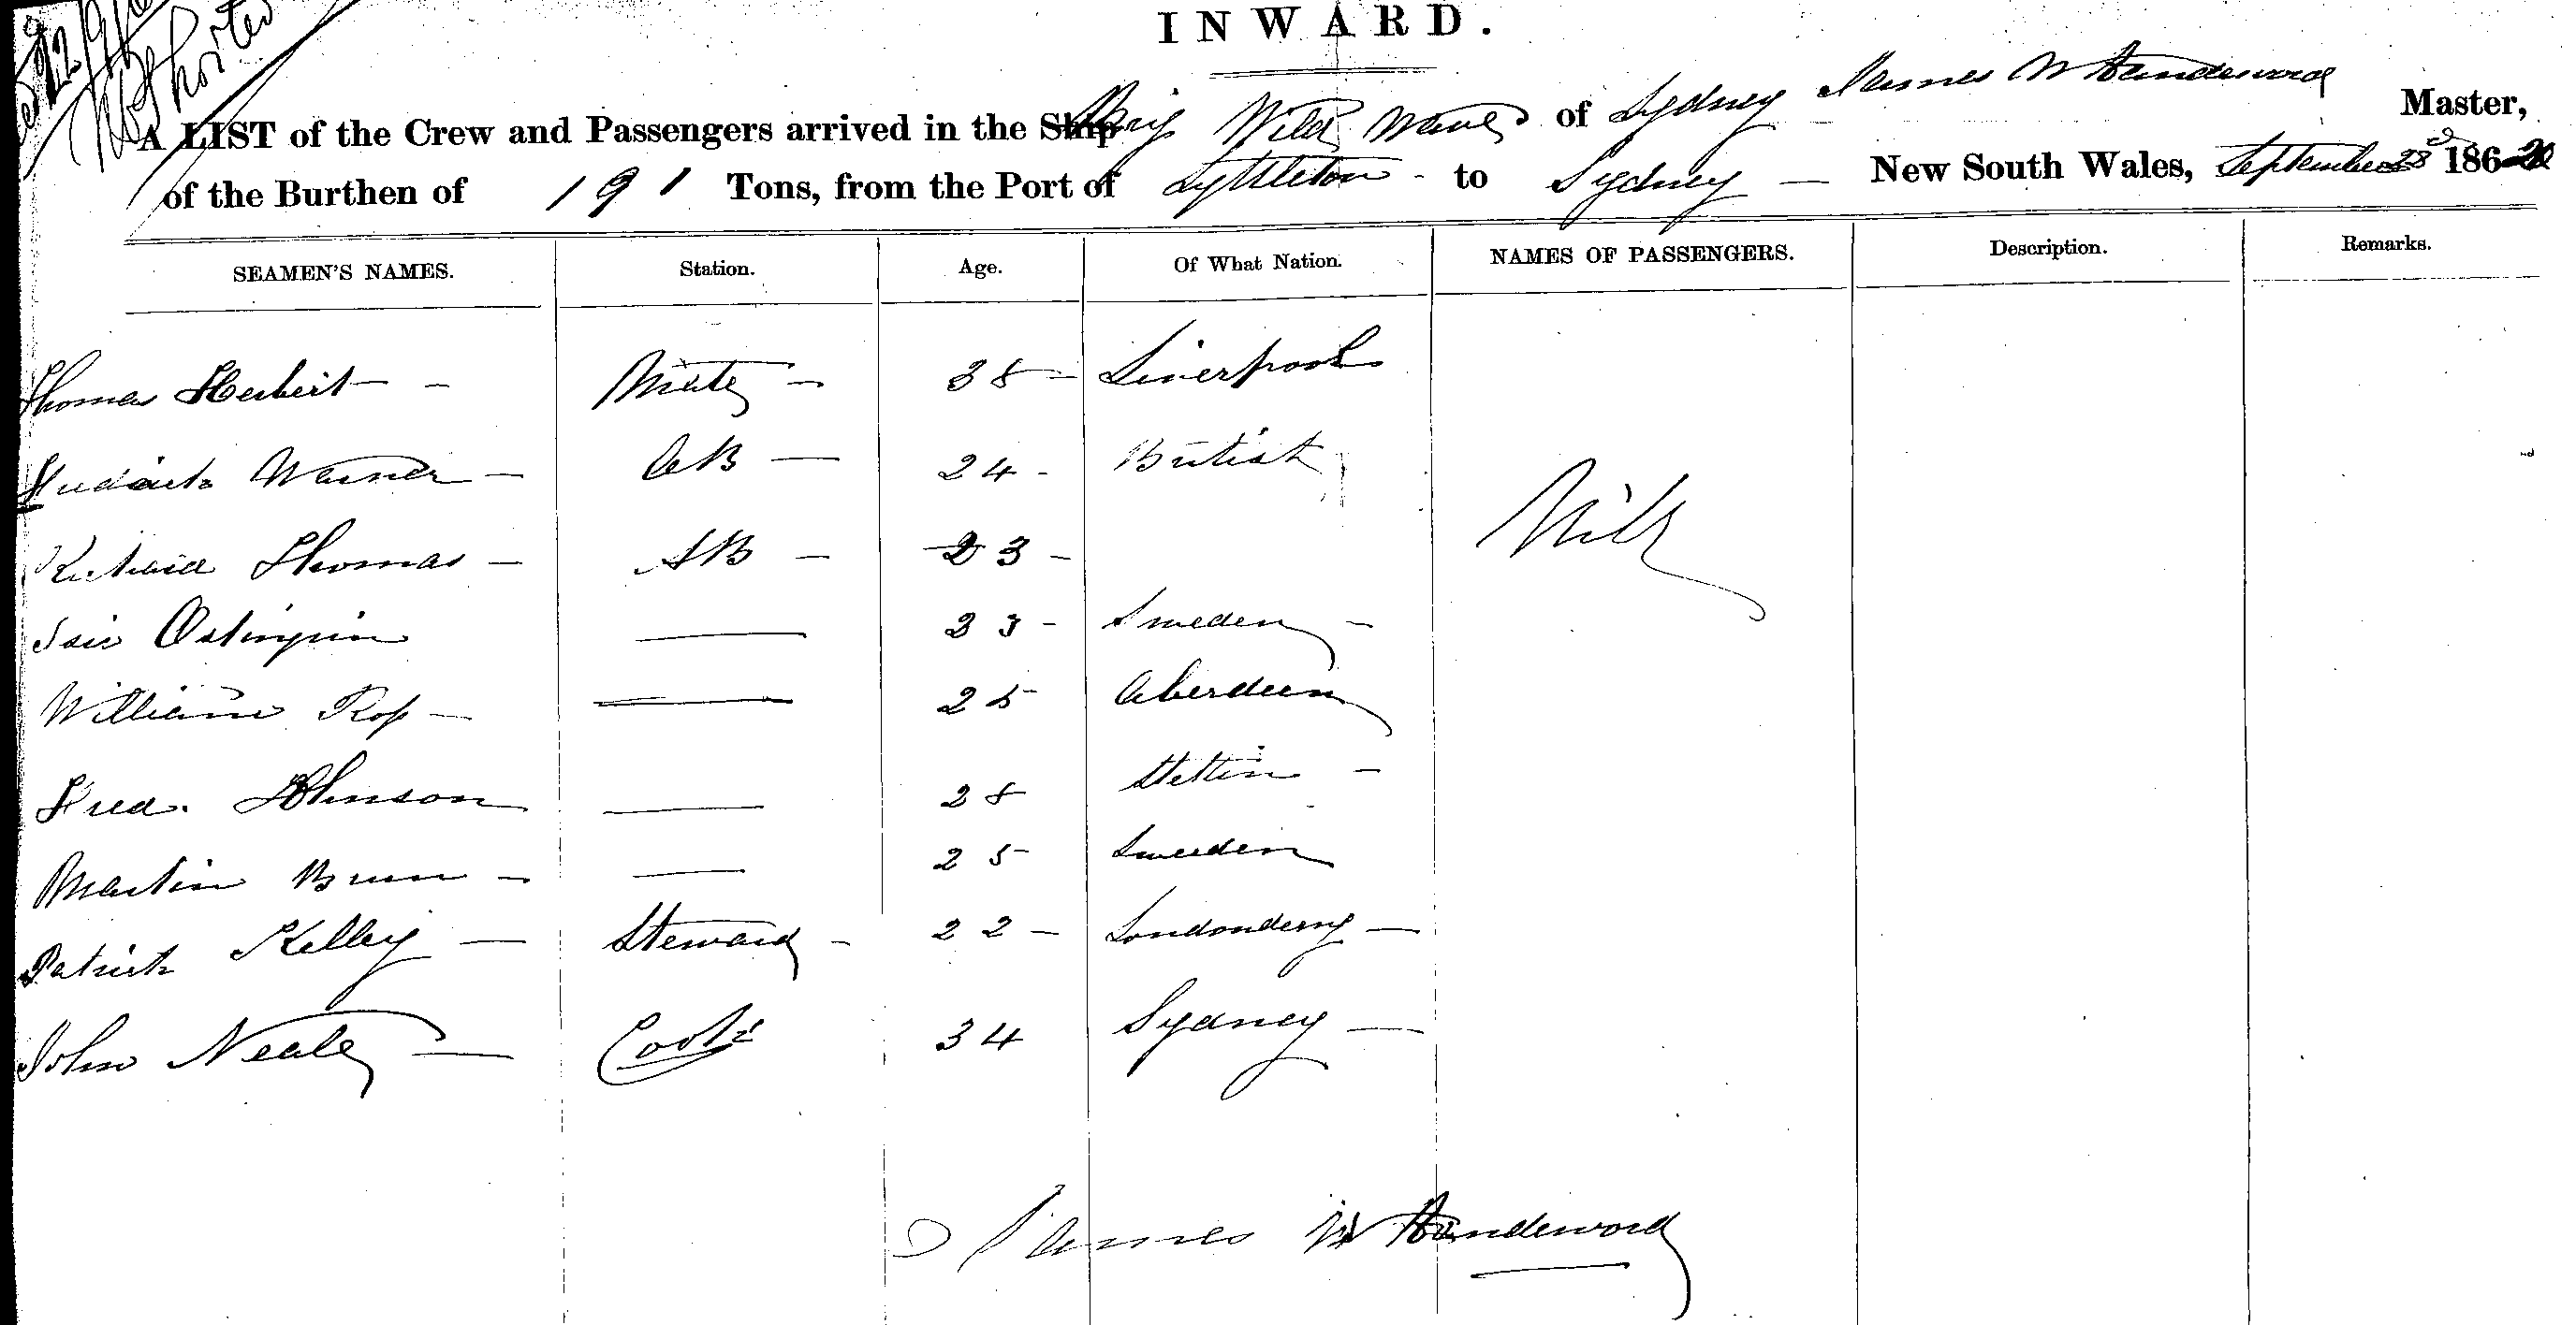 INWARD.
A LIST of the Crew and Passengers arrived in the Ship Brig Wild Wave of Sydney James W Master,
of the Burthen of 191 Tons, from the Port of Lyttleton - to Sydney — New South Wales, September 186
SEAMEN'S NAMES. Station. Age. Of What Nation. NAMES OF PASSENGERS. Description. Remarks.
Thomas Herbert — - Mate - 38 - Liverpool
Warner - AB — 24 - British
Richard Thomas - AB - 23 - Nil
Sweden - 23 -
William Ross - — 25 Aberdeen
Fred. Johnson — 28 Stettin -
Martin Brun - — 25 Sweden
Patrick Kelley — Steward - 22 - Londonderry —
John Neale — Cook 34 Sydney —
James W